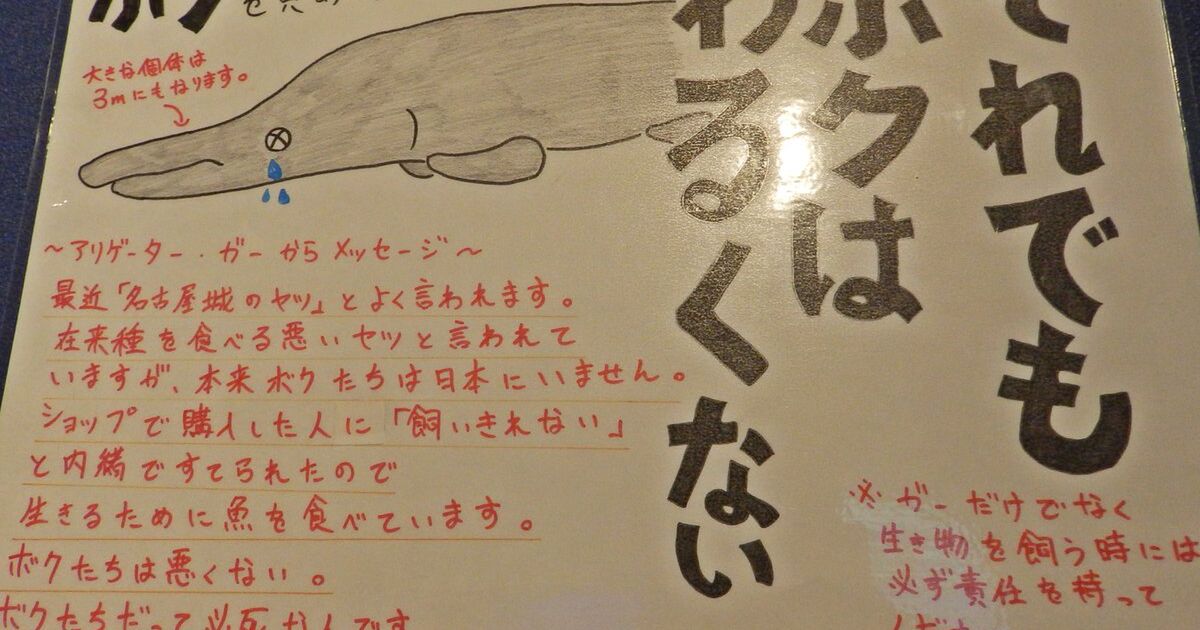 大きな個体は
3mにもなります。
それでも
ボクは
わるくない
～アリゲーター・ガーからメッセージ～
最近「名古屋城のヤツ」とよく言われます。
在来種を食べる悪いヤツと言われて
いますが、本来ボクたちは日本にいません。
ショップで購入した人に「飼いきれない」
と内緒ですてられたので
生きるために魚を食べています。
ボクたちは悪くない。
ボクたちだって必死なんです
※ガーだけでなく
生き物を飼う時には
必ず責任を持って